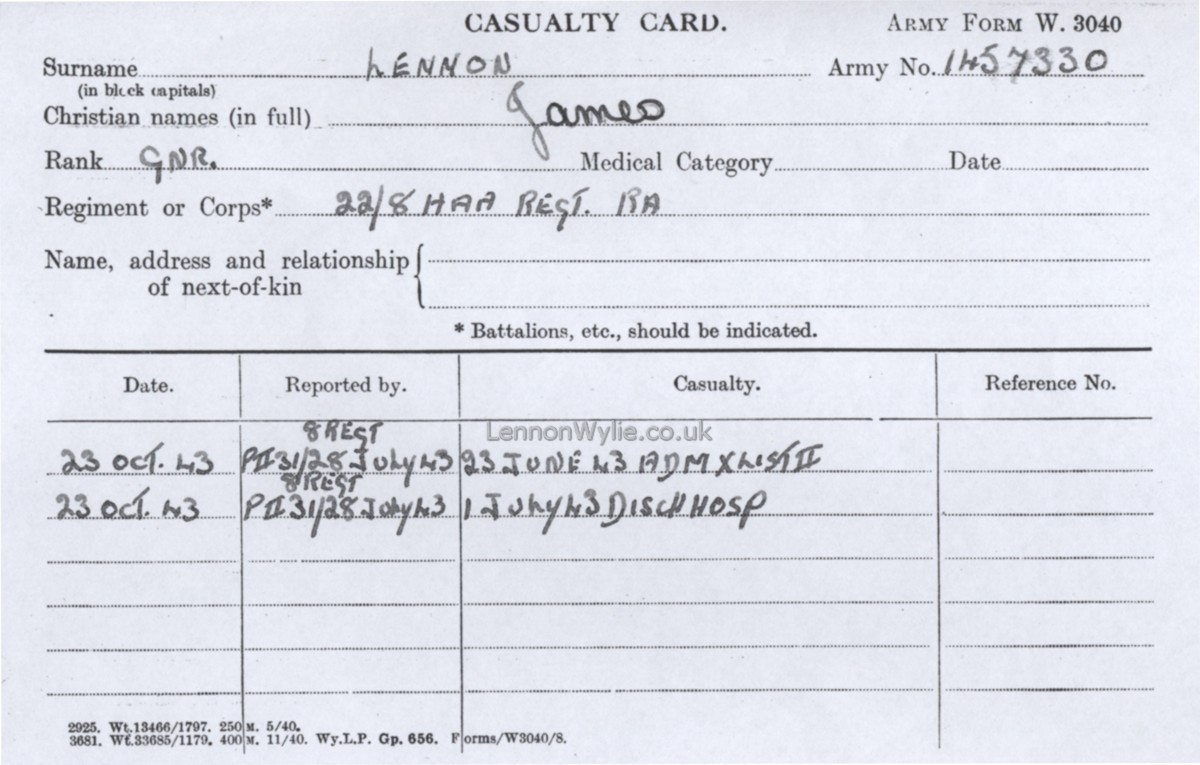 CASUALTY CARD. ARMY FORM W. 3040
Surname LENNON Army No. 1457330
(in block capitals)
Christian names (in full) James
Rank GNR. Medical Category Date
Regiment or Corps* 22/8 HAA REGT. RA
Name, address and relationship
of next-of-kin
* Battalions, etc., should be indicated.
Date. Reported by. Casualty. Reference No.
LennonWylie.co.uk
8 REGT
23 OCT. 43 PII 31/28 JULY 43 23 JUNE 43 ADM X LIST II
8 REGT
23 OCT. 43 PII 31/28 July 43 1 JULY 43 DISCH HOSP
2925. Wt.13466/1797. 250 M. 5/40.
3681. Wt.33685/1179. 400 M. 11/40. Wy.L.P. Gp. 656. Forms/W3040/8.